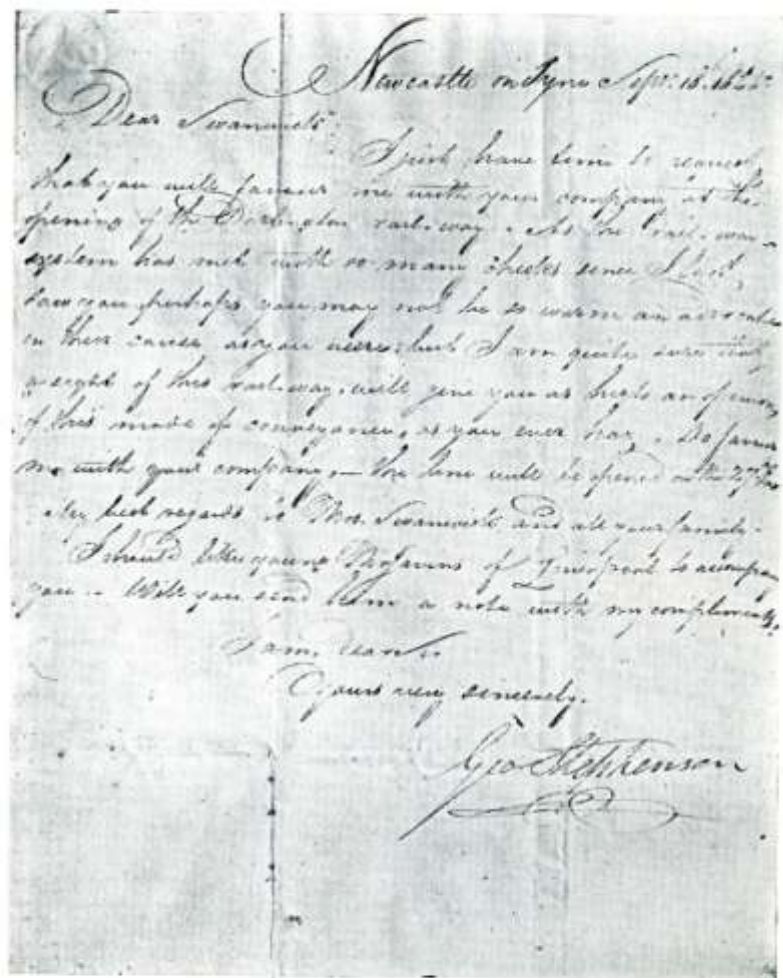 Newcastle on Tyne Sepr. 15th
Dear Swanwick
I just have time to request
that you will favour me with your company at the
opening of the Darlington rail-way. As the rail-way
system has met with so many checks since I last
saw you perhaps you may not be so warm an advocate
in their cause as you were: but I am quite sure that
a sight of this rail-way, will give you as high an opinion
of this mode of conveyance, as you ever had. Do favour
me with your company — the line will be opened on the 27th
My best regards to Mrs. Swanwick and all your family.
I should like young of Liverpool to accompany
you. Will you send him a note with my compliments.
I am, Dear Sir
Yours very sincerely.
Geo Stephenson